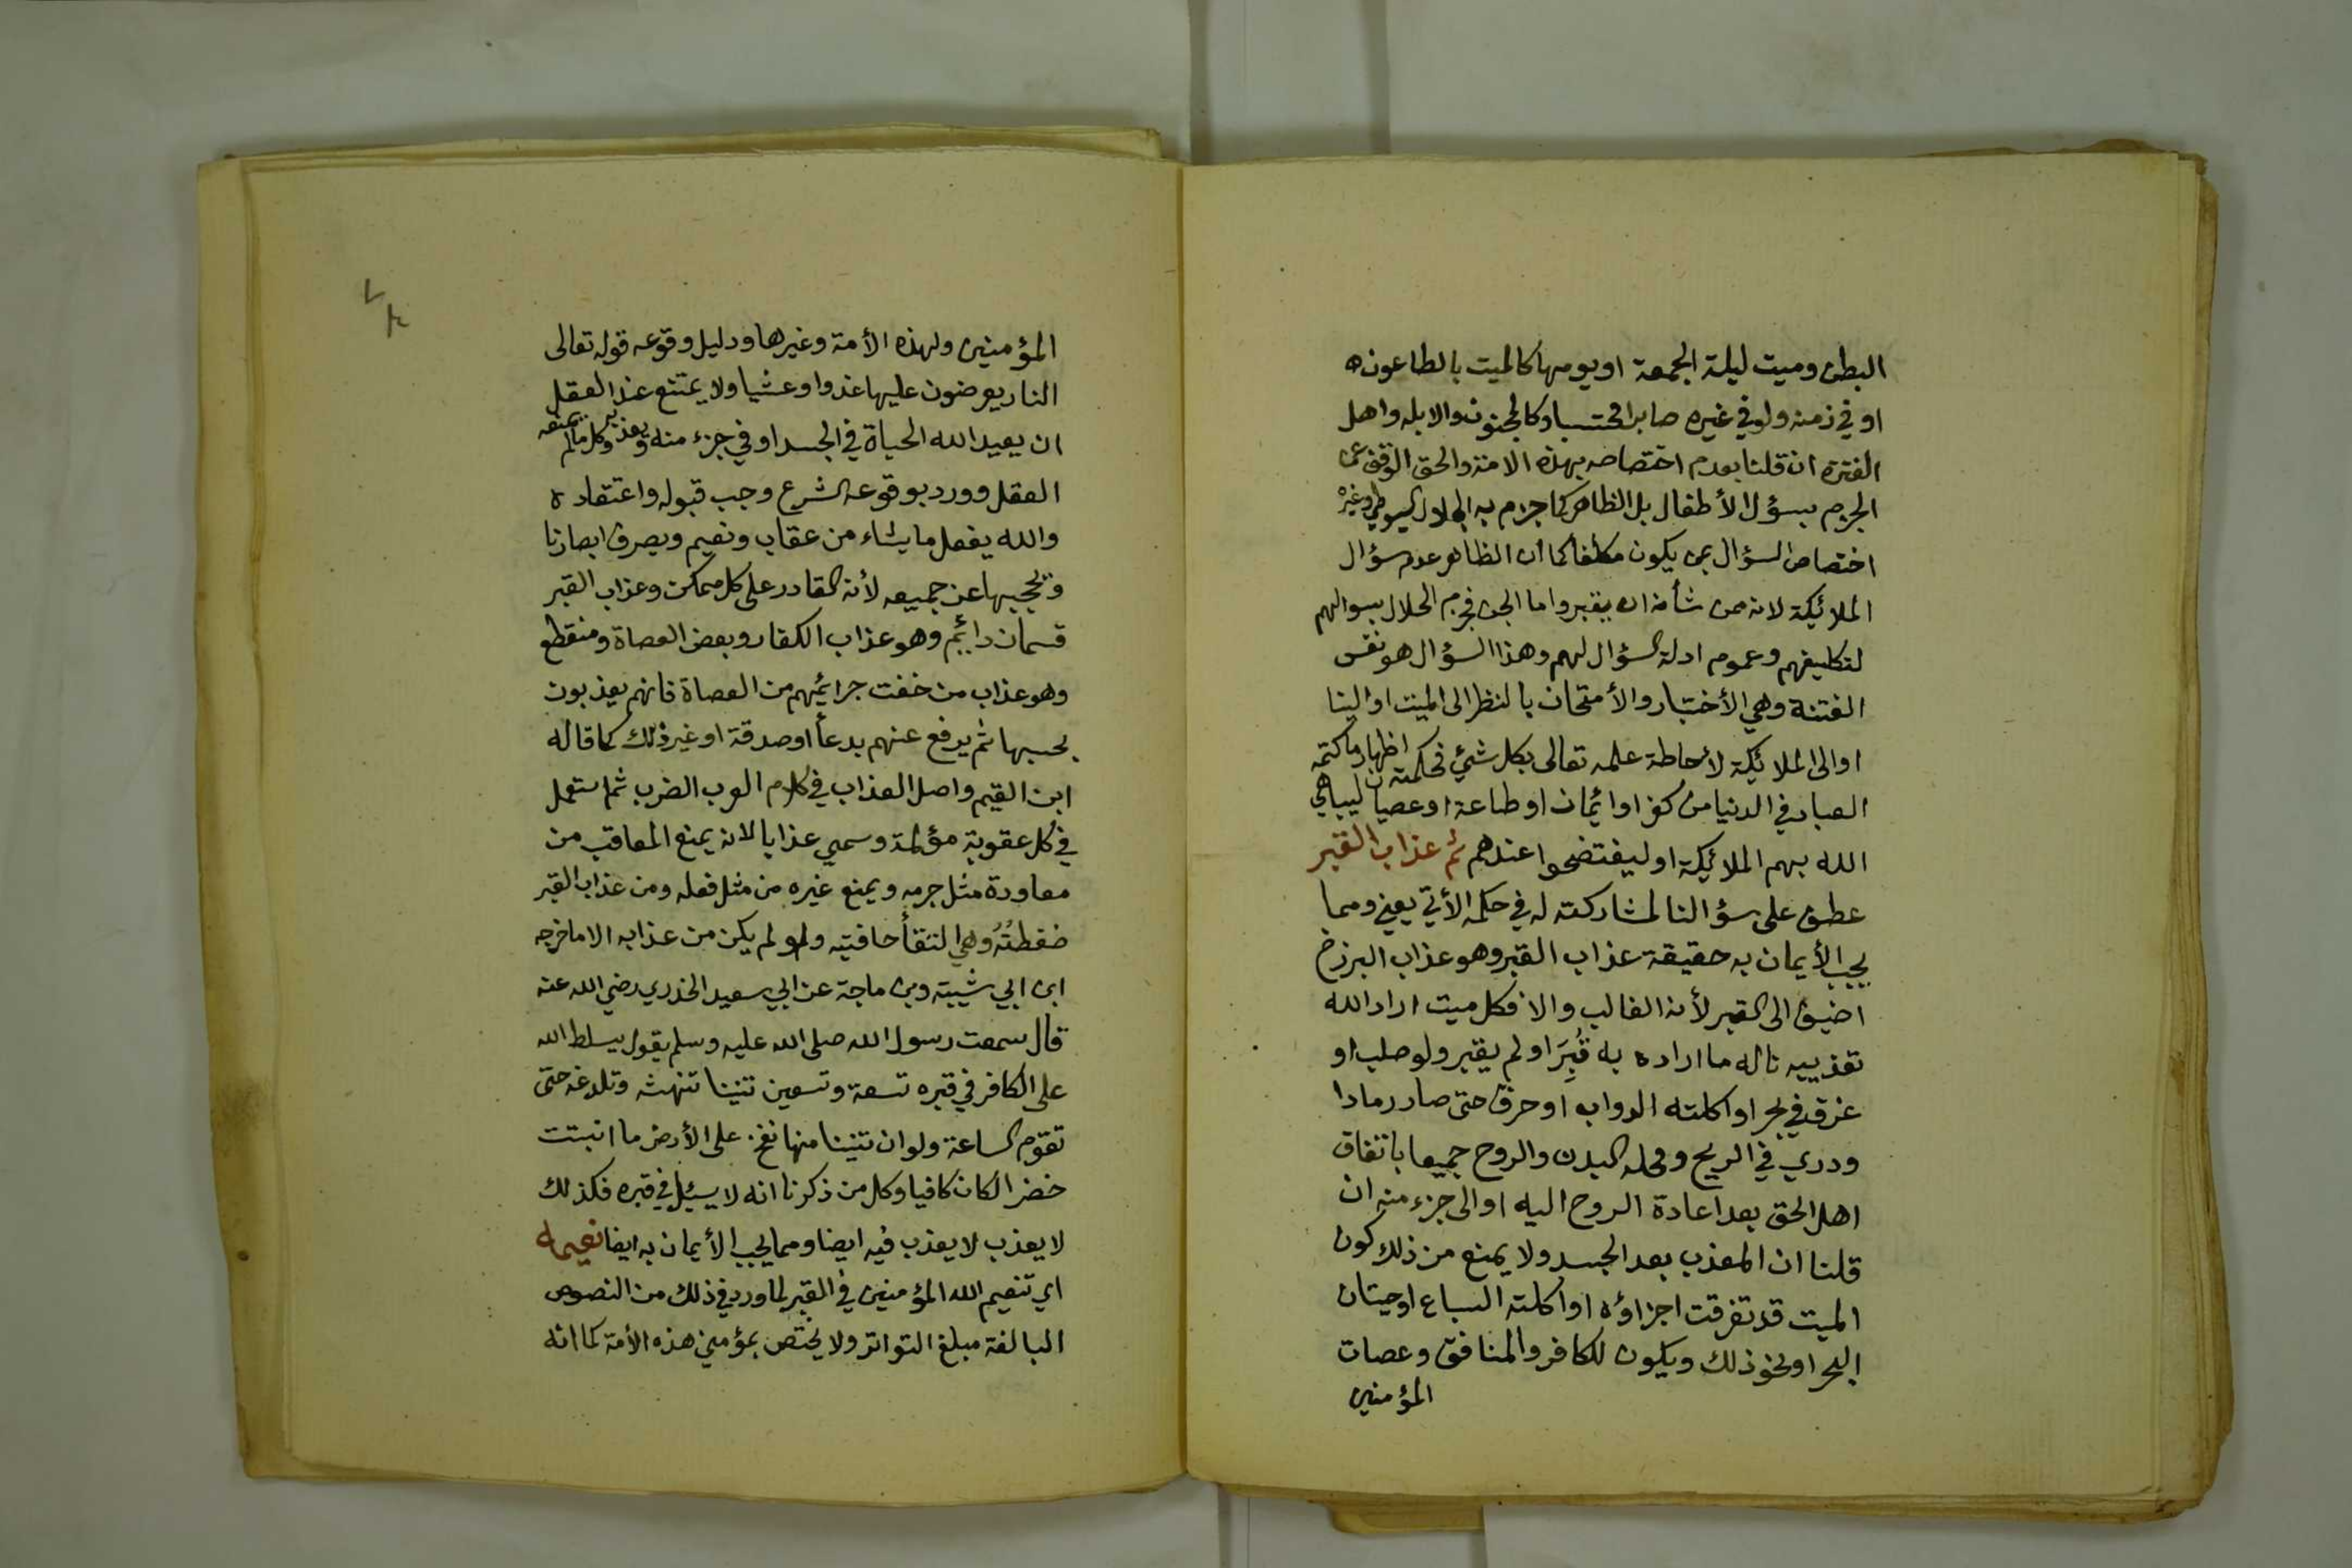 البطن وميت ليلة الجمعة او يومها كالميت بالطاعون ه
او في زمنه ولو في غيره صابرا محتسبا وكالمجنون والابله واهل
الفترة ان قلنا بعدم اختصاصه بهذه الامة والحق الوقف عن
الجزم بسؤال الأطفال بل الظاهر كما جزم به الجلال السيوطي وغيره
اختصاص السؤال بمن يكون مكلفا كما ان الظاهر عدم سؤال
الملائكة لانه من شأنه ان يقبر واما الجن فجزم الجلال بسوالهم
لتكليفهم وعموم ادلة السؤال لهم وهذا السؤال هو نفس
الفتنة وهي الأختبار والأمتحان بالنظر الى الميت او الينا
او الى الملائكة لأحاطة علمه تعالى بكل شئ فحكمته اظهار ما كتمه
العباد في الدنيا من كفر او ائمان او طاعة او عصيان ليباهي
الله بهم الملائكة او ليفتضحوا عندهم ثم عذاب القبر
عطف على سؤالنا لمشاركته له في حكمه الأتي يعني ومما
يجب الأيمان به حقيقة عذاب القبر وهو عذاب البرزخ
اضيف الى القبر لأنه الغالب والا فكل ميت اراد الله
تعذيبه ناله ما اراده به قُبِرَ او لم يقبر ولو صلب او
غرق في بحر او اكلته الدواب او حرق حتى صار رمادا
ودري في الريح ومحله البدن والروح جميعا باتفاق
اهل الحق بعد اعادة الروح اليه او الى جزء منه ان
قلنا ان المعذب بعد الجسد ولا يمنع من ذلك كون
الميت قد تفرقت اجزاؤه او اكلته السباع او حيتان
البحر او نحو ذلك ويكون للكافر والمنافق وعصات
المؤمنين
المؤمنين ولهذه الأمة وغيرها ودليل وقوعه قوله تعالى
النار يعرضون عليها غدوا وعشيا ولا يمتنع عند العقل
ان يعيد الله الحياة في الجسد او في جزء منه ويعذبه وكل ما لم يمنعه
العقل وورد بوقوعه الشرع وجب قبوله واعتقاده
والله يفعل ما يشاء من عقاب ونعيم ويصرف ابصارنا
ويحجبها عن جميعه لأنه القادر على كل ممكن وعذاب القبر
قسمان دائم وهو عذاب الكفار وبعض العصاة ومنقطع
وهو عذاب من خفت جرائمهم من العصاة فانهم يعذبون
بحسبها ثم يرفع عنهم بدعأ او صدقة او غير ذلك كما قاله
ابن القيم واصل العذاب في كلام العرب الضرب ثم استعمل
في كل عقوبة مؤلمة وسمي عذابا لانه يمنع المعاقب من
معاودة مثل جرمه ويمنع غيره من مثل فعله ومن عذاب القبر
ضغطتُهُ وهي التقأ حافتيه ولو لم يكن من عذابه الا ما خرجه
ابن ابي شيبة وبن ماجة عن ابي سعيد الخدري رضي الله عنه
قال سمعت رسول الله صلى الله عليه وسلم يقول يسلط الله
على الكافر في قبره تسعة وتسعين تنينا تنهشه وتلدغه حتى
تقوم الساعة ولو ان تنينا منها نفخ على الأرض ما انبتت
خضرا لكان كافيا وكل من ذكرنا انه لا يسئل في قبره فكذلك
لا يعذب لا يعذب فيه ايضا ومما يجب الأيمان به ايضا نعيمه
اي تنعيم الله المؤمنين في القبر لما ورد في ذلك من النصوص
البالغة مبلغ التواتر ولا يختص بمؤمني هذه الأمة كما انه